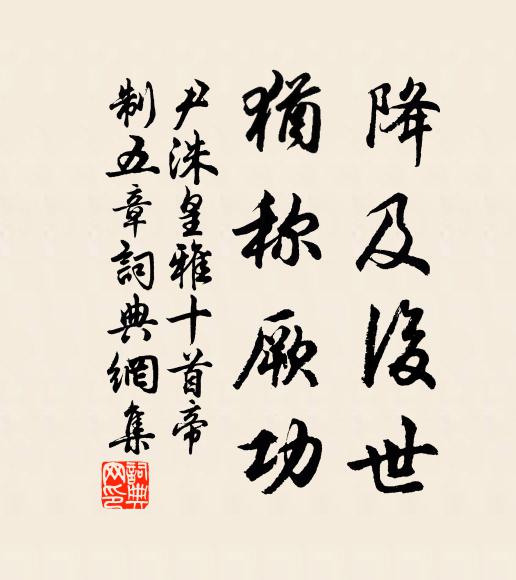 降及後世
猶称厥功
尹洙皇雅十首帝
制五章詞典網集
詞典网印